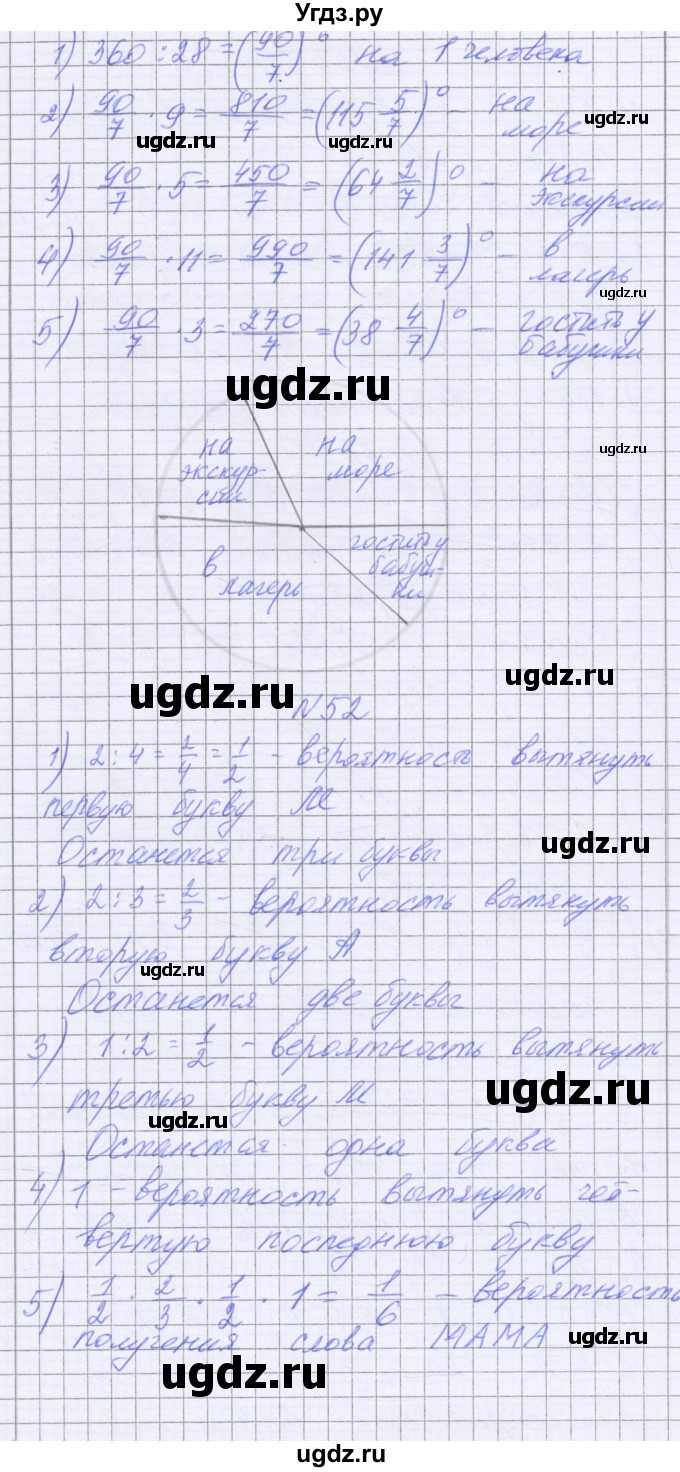 Угдз.ру
1) 360 : 28 = (90/7)° на 1 человека
2) 90/7 · 9 = 810/7 = (115 5/7)° – на море
ugdz.ru ugdz.ru ugdz.ru
3) 90/7 · 5 = 450/7 = (64 2/7)° – на экскурсии
4) 90/7 · 11 = 990/7 = (141 3/7)° – в лагерь
ugdz.ru
5) 90/7 · 3 = 270/7 = (38 4/7)° – гостить у бабушки
ugdz.ru
на экскур-
сии
на
море
ugdz.ru
в
лагерь
гостить у
бабуш-
ки
ugdz.ru
ugdz.ru
N 52
1) 2 : 4 = 2/4 = 1/2 - вероятность вытянуть
первую букву М
ugdz.ru
Останется три буквы
2) 2 : 3 = 2/3 - вероятность вытянуть
вторую букву А
ugdz.ru
Останется две буквы
3) 1 : 2 = 1/2 - вероятность вытянуть
ugdz.ru
третью букву М
ugdz.ru
Останется одна буква
4) 1 – вероятность вытянуть чет-
вертую последнюю букву
5) 1/2 · 2/3 · 1/2 · 1 = 1/6 – вероятность
получения слова МАМА
ugdz.ru
ugdz.ru
ugdz.ru